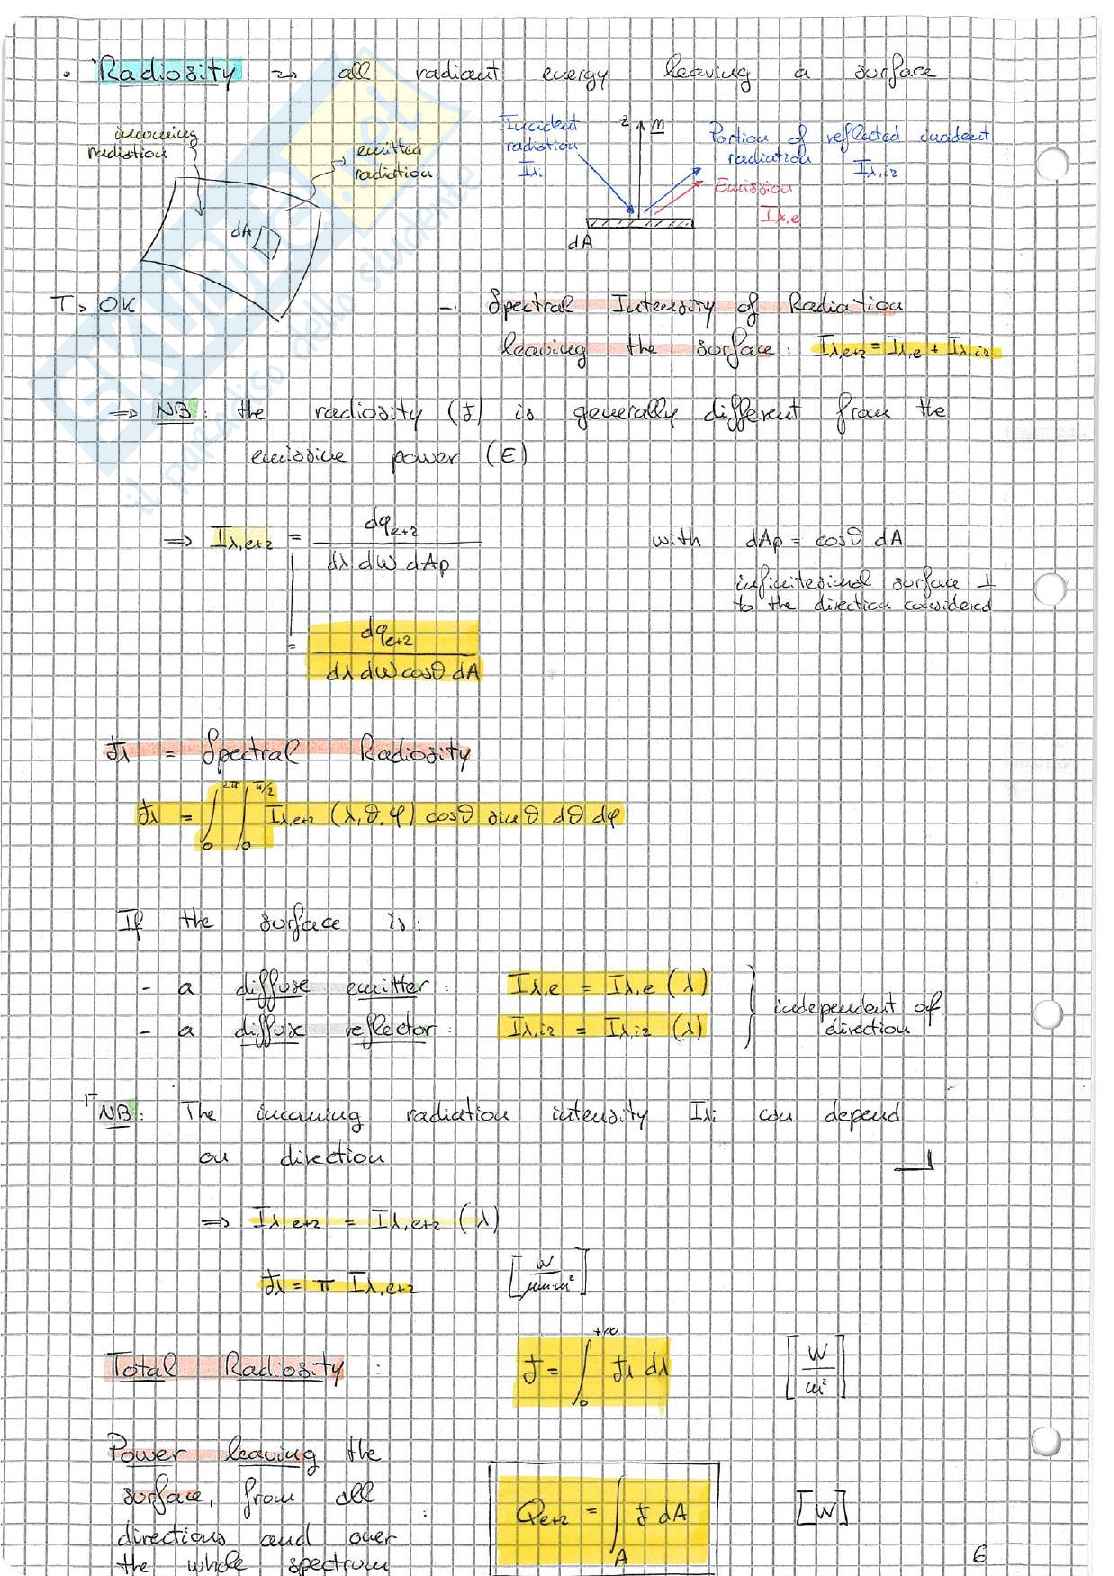 · Radiosity ⇝ all radiant energy leaving a surface
incoming
radiation
emitted
radiation
dA
T > 0K
Incident
radiation
Iλi
z n
Portion of reflected incident
radiation
Iλ,i2
Emission
Iλ,e
dA
- Spectral Intensity of Radiation
leaving the surface: Iλ,e+2 = Iλ,e + Iλ,i2
⇒ NB: the radiosity (J) is generally different from the
emissive power (E)
⇒ Iλ,e+2 = dqe+2 / dλ dω dAp
with dAp = cosθ dA
infinitesimal surface ⊥
to the direction considered
= dqe+2 / dλ dω cosθ dA
Jλ = Spectral Radiosity
Jλ = ∫₀^2π ∫₀^π/2 Iλ,e+2 (λ,θ,φ) cosθ sinθ dθ dφ
If the surface is:
- a diffuse emitter: Iλ,e = Iλ,e (λ)
- a diffuse reflector: Iλ,i2 = Iλ,i2 (λ)
independent of
direction
NB: The incoming radiation intensity Iλi can depend
on direction
⇒ Iλ,e+2 = Iλ,e+2 (λ)
Jλ = π Iλ,e+2 [W / μm m²]
Total Radiosity: J = ∫₀^+∞ Jλ dλ [W / m²]
Power leaving the
surface, from all
directions and over
the whole spectrum
: Qe+2 = ∫A J dA [W]
6
il punto di
dello studente